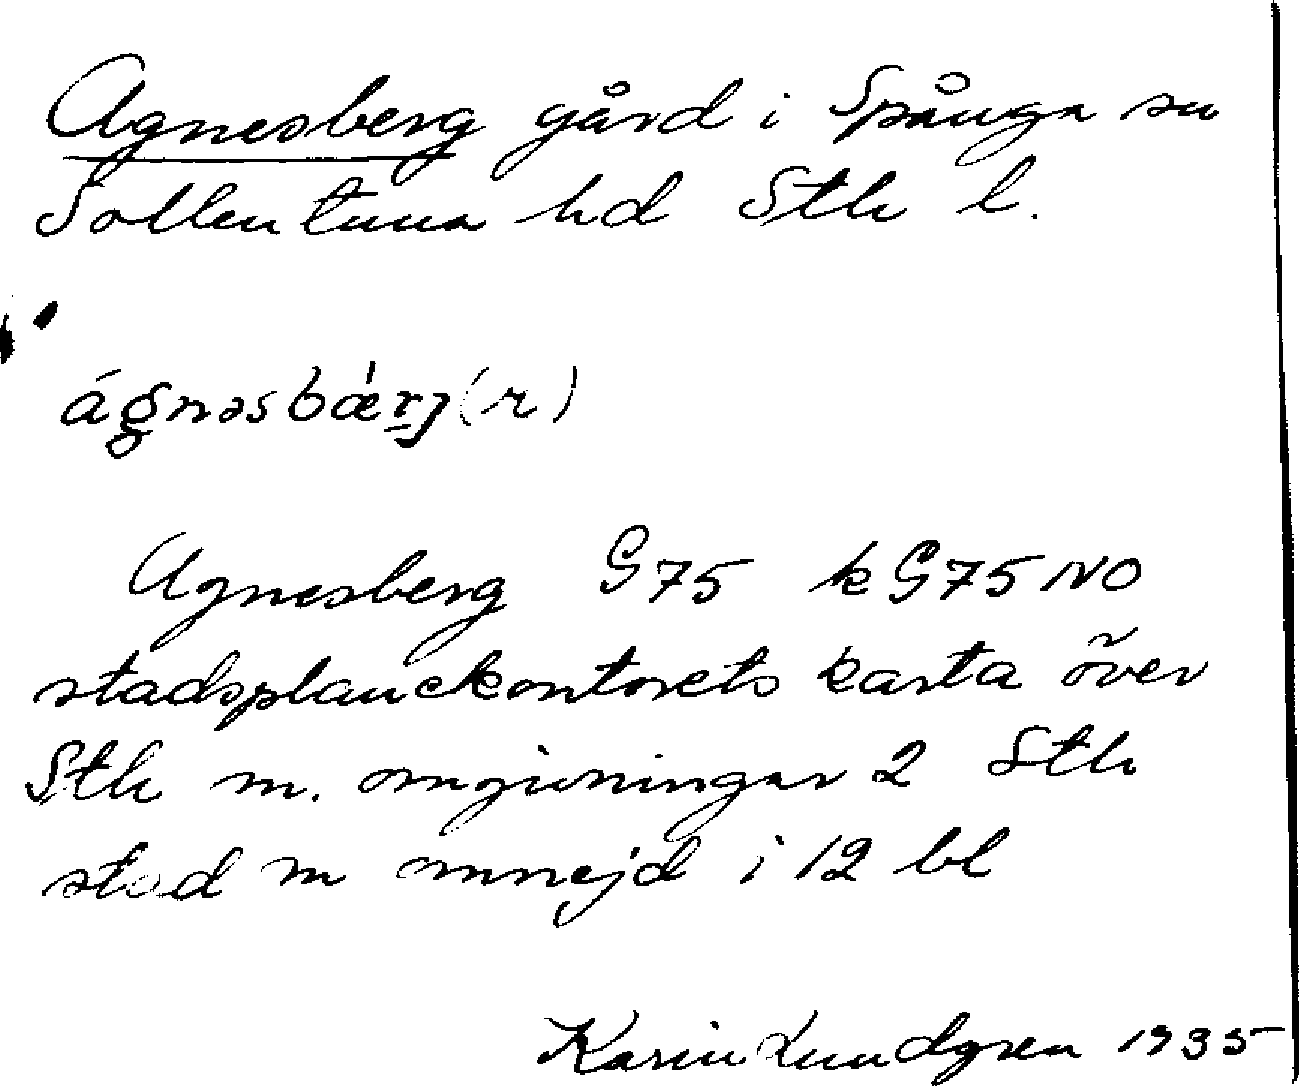 Agnesberg gård i Spånga sn
Sollentuna hd Sth l.
ágnəsbǽrj(r)
Agnesberg G75 k G75 NO
stadsplanekontorets karta över
Sth m. omgivningar 2 Sth
stad m omnejd i 12 bl
Karin Lundgren 1935